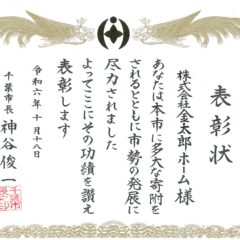 表彰状
株式会社金太郎ホーム様
あなたは本市に多大な寄附を
されるとともに市勢の発展に
尽力されました
よってここにその功績を讃え
表彰します
令和六年十月十八日
千葉市長 神谷俊一